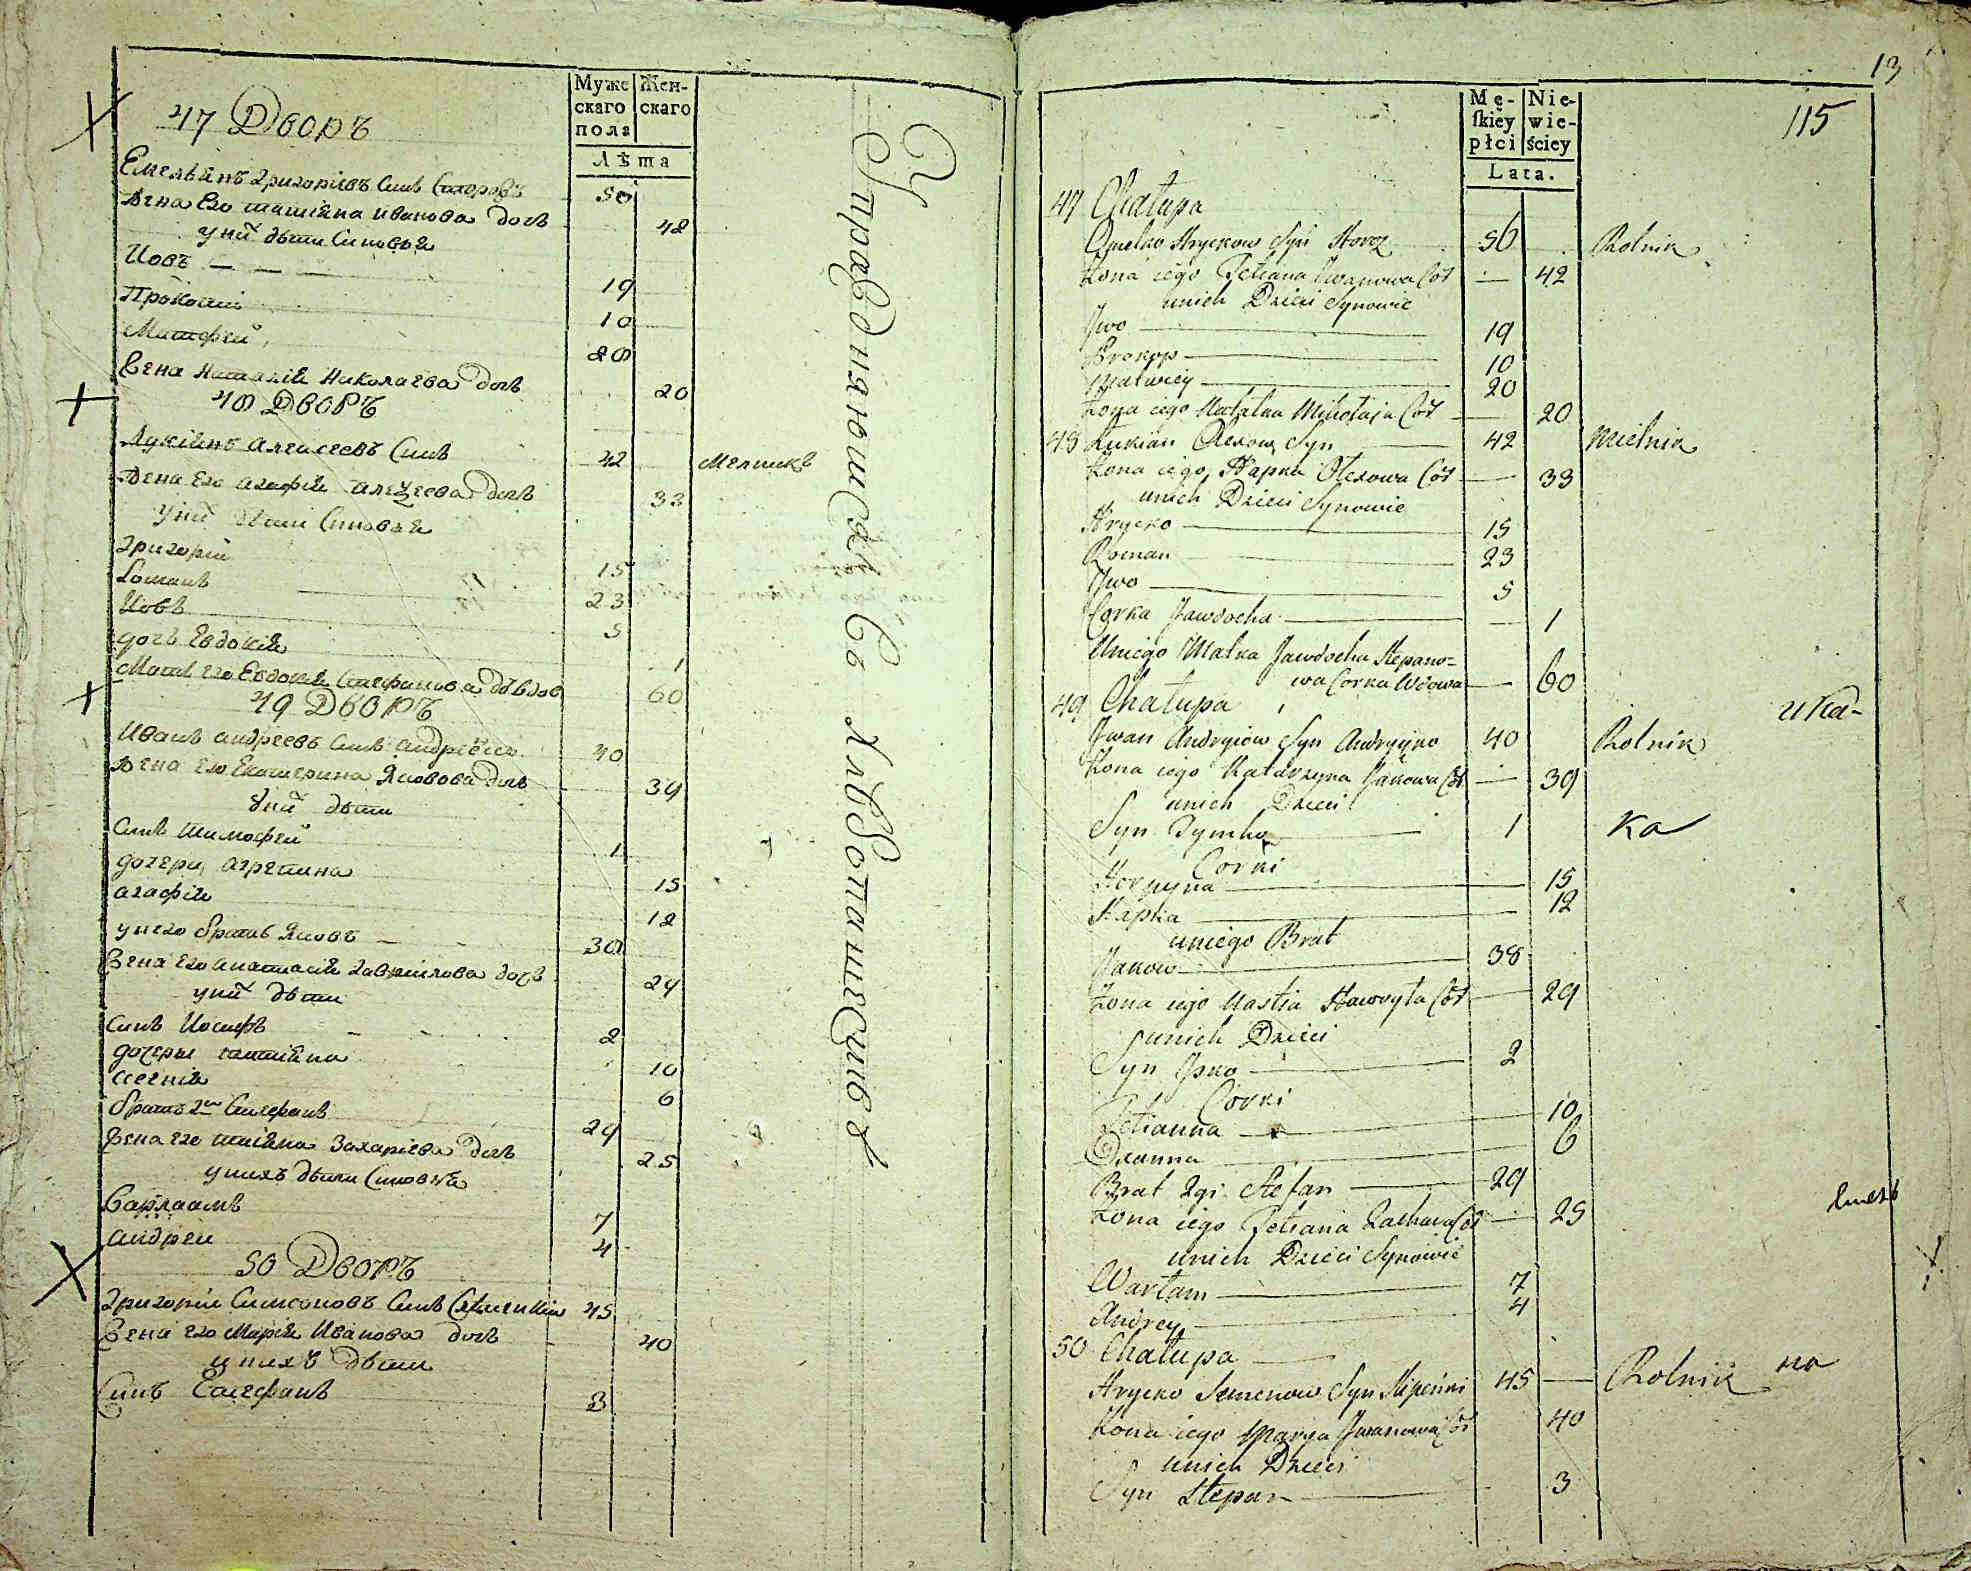 Муже
скаго
пола
Жен-
скаго
Лѣта
47 Дворъ
Емельянъ Григориевъ Синъ 50
Жена Его татияна иванова дочъ 42
у них дѣти Синовья
Иовъ 19
Прокопий 10
Матфей 20
Жена Наталия Николаева дочъ 20
48 Дворъ
Лукиянъ алексеевъ Синъ 42 Мелникъ
Жена Его агафия дочъ 33
у них дѣти Синовья
григорий 15
Романъ 23
Иовъ 5
дочъ Евдокия 1
Мать его Евдокия Стефанова 60
49 Дворъ
Иванъ андреевъ Синъ 40
Жена его Екатерина Яковова дочъ 39
у них дѣти
Синъ тимофей 1
дочери, агрепина 15
агафия 12
у него братъ Яковъ 38
Жена Его анастасия гаврилова дочъ 29
у них дѣти
Синъ Иосифъ 2
дочери татияна 10
6
братъ 2й Стефанъ 29
Жена его татияна Захариева дочъ 25
у нихъ дѣти Синовья
Варлаамъ 7
андрей 4
50 Дворъ
григорий Симеоновъ Синъ 45
Жена его Мария Иванова дочъ 40
у нихъ дѣти
Синъ Стефанъ 3
13
115
Mę-
skiey
płci
Nie-
wie-
ściey
Lata.
47 Chałupa
Omelko Hryckow Syn 50 Rolnik
Żona iego Tetiana Iwanowa Cór 42
unich Dzieci Synowie
Iwo 19
Prokop 10
Matwiey 20
Żona iego Natalka Mikołaja Cór 20
48 Łukian Olexow Syn 42 Mielnik
Żona iego Hapka Olexowa Cór 33
unich Dzieci Synowie
Hrycko 15
Roman 23
Iwo 5
Corka Jawdocha 1
Uniego Matka Jawdocha Stepano-
wa Corka Wdowa 60
49 Chałupa
Iwan Andryiow Syn Andryiko 40 Rolnik
Żona iego Katarzyna Jakowa Cór 39
unich Dzieci
Syn Tymko 1
Corki
Horpyna 15
Hapka 12
uniego Brat
Jakow 38
Żona iego Nastia Hawryła Cór 29
unich Dzieci
Syn Josko 2
Corki
Tetianna 10
Oxanna 6
Brat 2gi Stefan 29
Żona iego Tetiana Zachara Cór 25
unich Dzieci Synowie
Warłam 7
Andrey 4
50 Chałupa
Hrycko Semenow Syn 45 Rolnik
Żona iego Marya Iwanowa Cór 40
unich Dzieci
Syn Stepan 3
ка
на